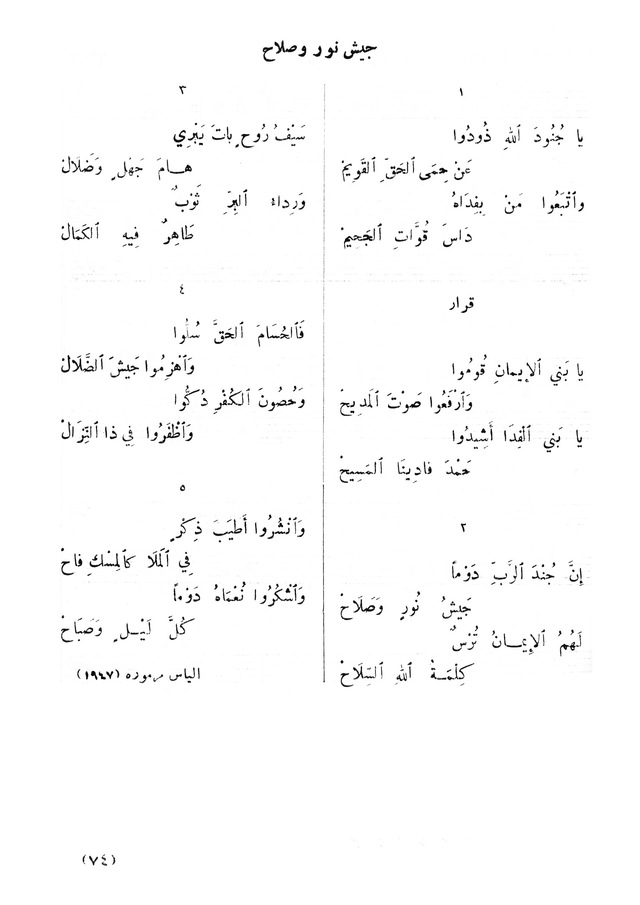 جيش نور وصلاح
١
يا جُنُودَ ٱللهِ ذُودُوا
عَنْ حِمَى ٱلحَقِّ ٱلقَوِيمْ
وٱتْبَعُوا مَنْ بِفِدَاهُ
دَاسَ قُوَّاتِ ٱلجَحِيمْ
قرار
يا بَنِي ٱلإِيمانِ قُومُوا
وَٱرْفَعُوا صَوْتَ ٱلمَدِيحْ
يا بَنِي ٱلْفِدَا أَشِيدُوا
حَمْدَ فادِينَا ٱلمَسِيحْ
٢
إِنَّ جُنْدَ ٱلرَّبِّ دَوْماً
جَيشُ نُورٍ وَصَلَاحْ
لَهُمُ ٱلإِيمانُ تُرْسٌ
كِلْمَةُ ٱللهِ ٱلسِّلَاحْ
٣
سَيْفُ رُوحٍ باتَ يَبْرِي
هامَ جَهْلٍ وَضَلَالْ
وَرِداءُ ٱلبِرِّ ثَوْبٌ
طَاهِرٌ فِيهِ ٱلكَمَالْ
٤
فَٱلحُسَامَ ٱلحَقَّ سُلُّوا
وَٱهْزِمُوا جَيشَ ٱلضَّلَالْ
وَحُصُونَ ٱلكُفْرِ دُكُّوا
وَٱظْفَرُوا فِي ذا ٱلنِّزَالْ
٥
وَٱنْشُرُوا أَطْيَبَ ذِكْرٍ
فِي ٱلمَلَا كَٱلمِسْكِ فاحْ
وَٱشْكُرُوا نُعْمَاهُ دَوْماً
كُلَّ لَيْلٍ وَصَبَاحْ
الياس مرموره (١٩٤٧)
(٧٤)